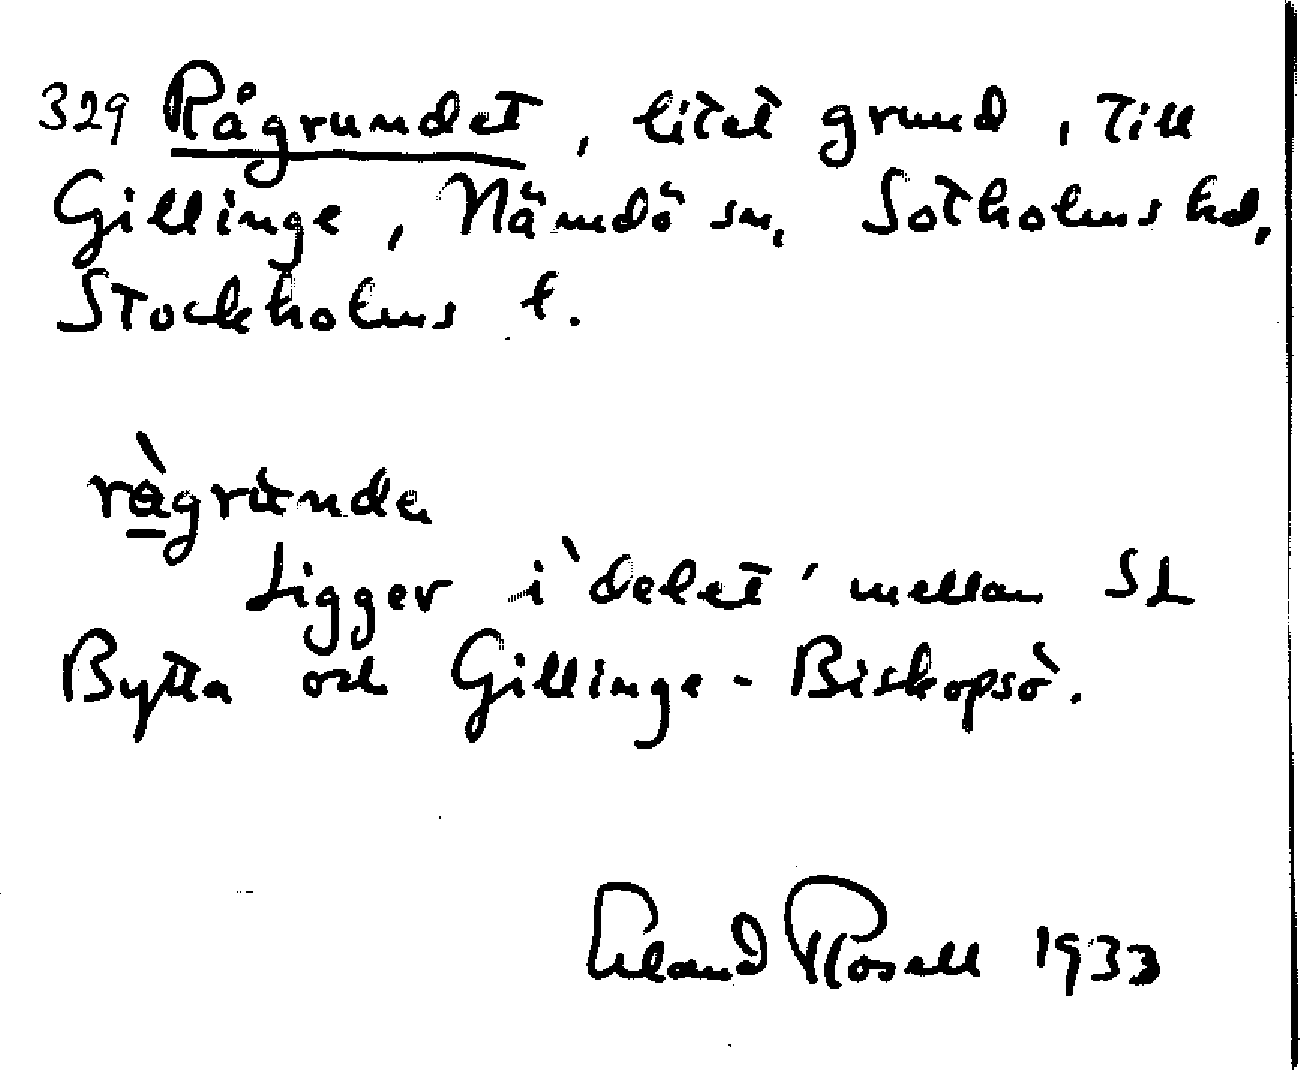 329 Rågrundet, litet grund, till
Gillinge, Nämdö sn, Sotholms hd,
Stockholms l.
rågrunde
Ligger i 'delet' mellan St
Bytta och Gillinge-Biskopsö.
Erland Rosell 1933